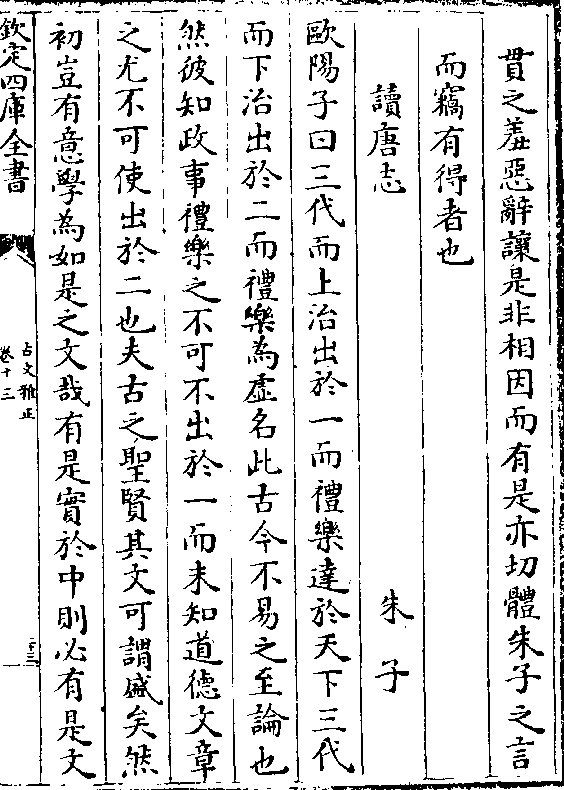 貫之羞惡辭讓是非相因而有是亦切體朱子之言
而竊有得者也
讀唐志 朱子
歐陽子曰三代而上治出於一而禮樂達於天下三代
而下治出於二而禮樂為虛名此古今不易之至論也
然彼知政事禮樂之不可不出於一而未知道德文章
之尤不可使出於二也夫古之聖賢其文可謂盛矣然
初豈有意學為如是之文哉有是實於中則必有是文
欽定四庫全書
古文雅正
卷十三